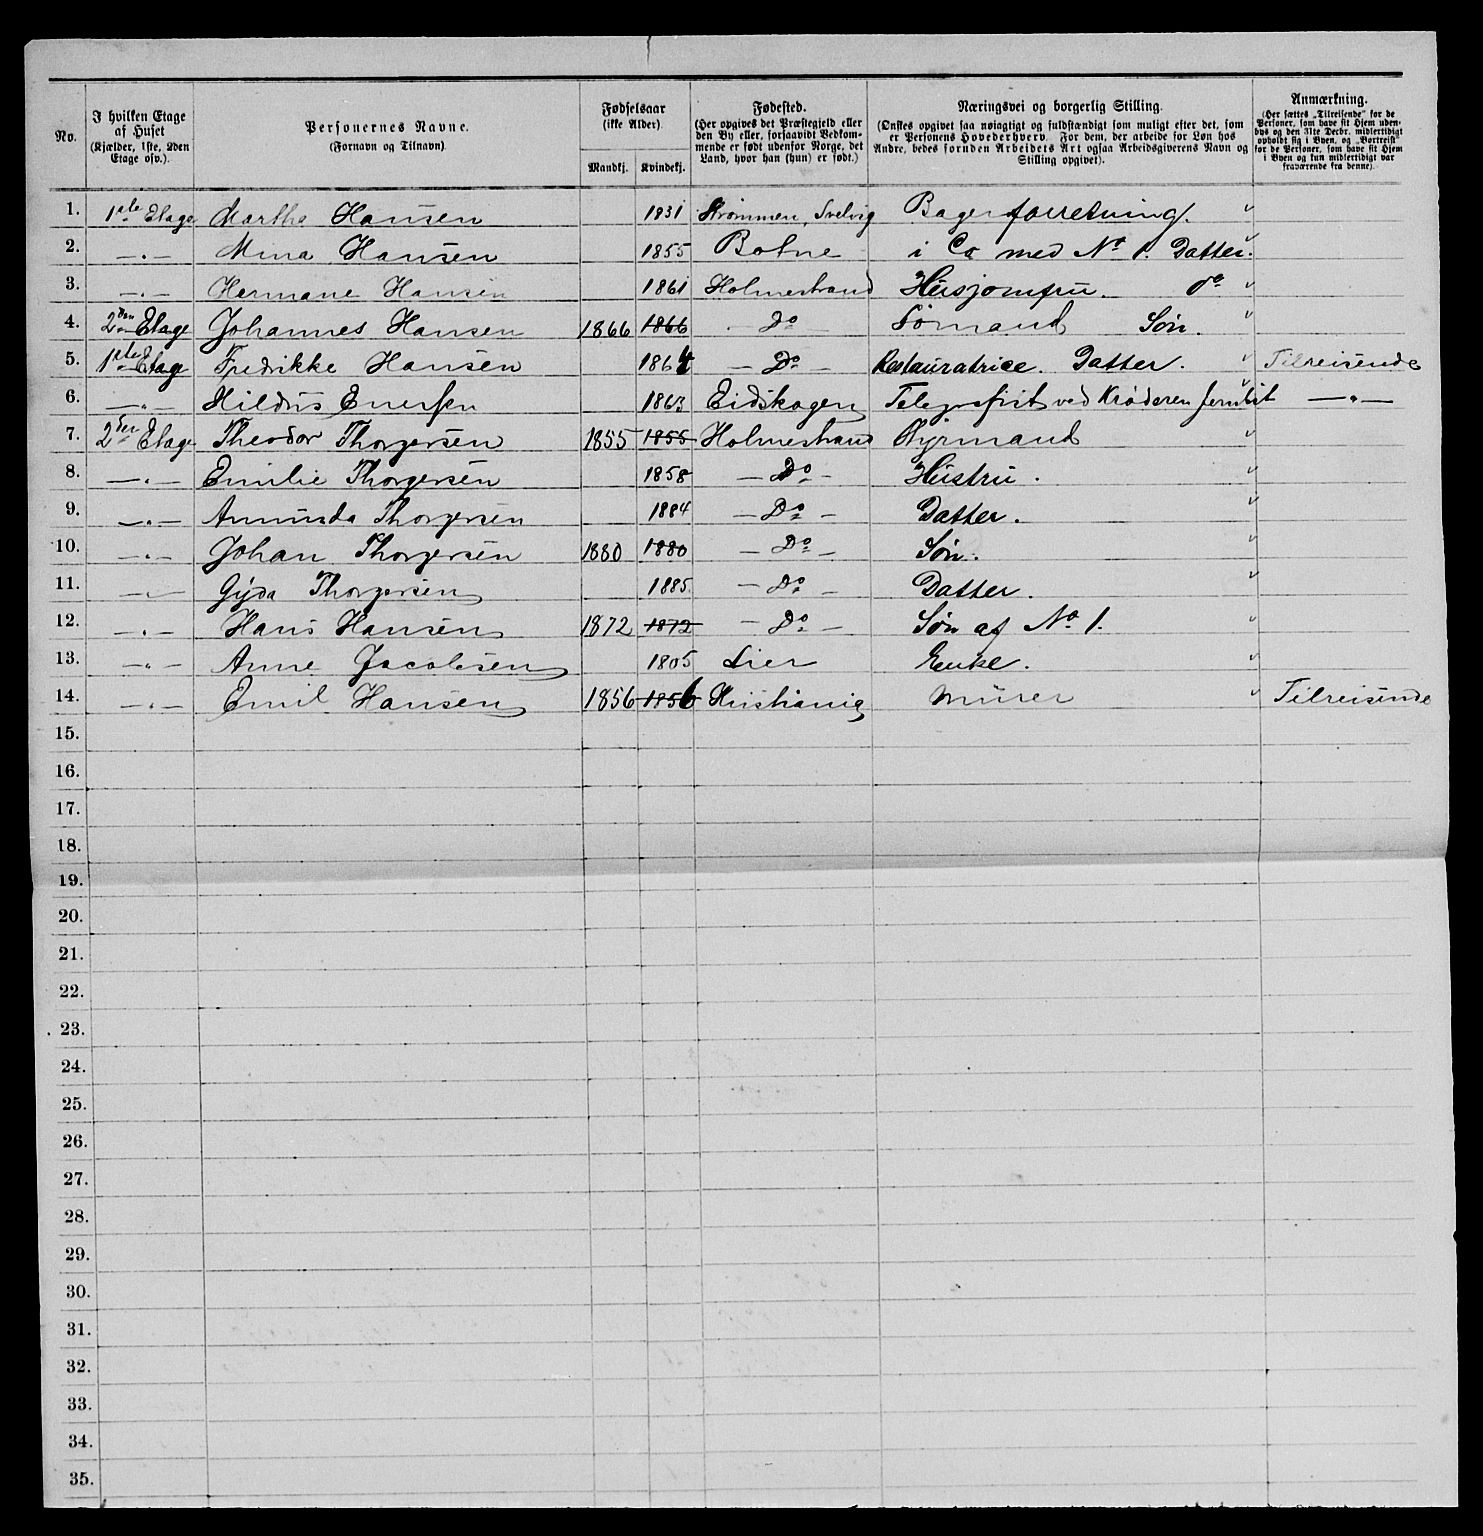 No.
I hvilken Etage af Huset (Kjælder, 1ste, 2den Etage osv.).
Personernes Navne. (Fornavn og Tilnavn).
Fødselsaar (ikke Alder)
Mandkj. Kvindekj.
Fødested. (Her opgives det Præstegjeld eller den By eller, forsaavidt Vedkommende er født udenfor Norge, det Land, hvor han (hun) er født.)
Næringsvei og borgerlig Stilling. (Ønskes opgivet saa nøiagtigt og fuldstændigt som muligt efter det, som er Personens Hovederhverv. For dem, der arbeide for Løn hos Andre, bedes foruden Arbeidets Art ogsaa Arbeidsgiverens Navn og Stilling opgivet).
Anmærkning. (Her sættes „Tilreisende“ for de Personer, som have sit Hjem udenbys og den 31te Decbr. midlertidigt opholdt sig i Byen, og „Bortreist“ for de Personer, som have sit Hjem i Byen og kun midlertidigt var fraværende fra denne).
1. 1ste Etage Marthe Hansen 1831 Strömmen, Svelvig Bagerforretning.
2. —„— Mina Hansen 1855 Botne i Co med No 1. Datter.
3. —„— Hermane Hansen 1861 Holmestrand Husjomfru. do
4. 2den Etage Johannes Hansen 1866 1866 Do Sömand Sön.
5. 1ste Etage Fredrikke Hansen 1864 — Do — Restauratrice. Datter. Tilreisende
6. —„— 1863 Eidskogen Telegrafist ved Kröderen —„—
7. 2den Etage Theodor Thorgersen 1855 1855 Holmestrand Styrmand
8. —„— Emilie Thorgersen 1858 — Do — Hustru.
9. —„— Amunda Thorgersen 1884 — Do — Datter.
10. —„— Johan Thorgersen 1880 1880 — Do — Sön.
11. —„— Gyda Thorgersen 1885. — Do — Datter.
12. —„— Hans Hansen 1872 1872 — Do — Sön af No 1.
13. —„— Anne Jacobsen 1805 Lier Enke.
14. —„— Emil Hansen 1856 1856 Kristiania Murer Tilreisende
15.
16.
17.
18.
19.
20.
21.
22.
23.
24.
25.
26.
27.
28.
29.
30.
31.
32.
33.
34.
35.